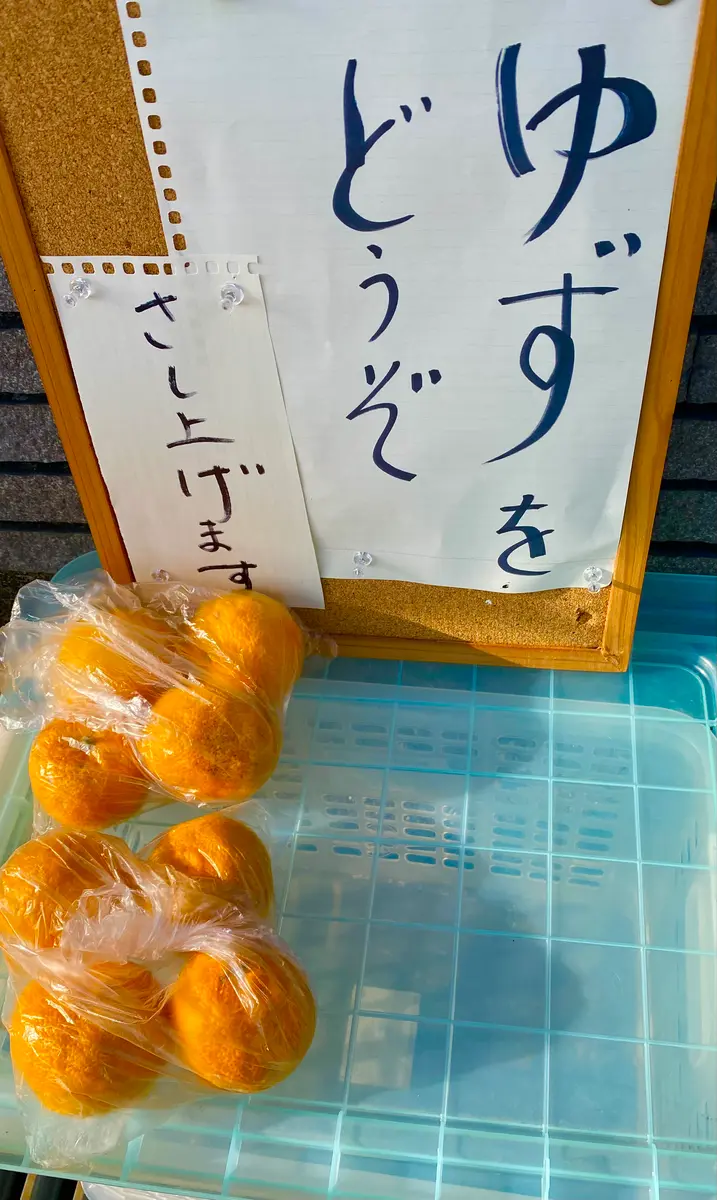 ゆずを
どうぞ
さし上げます